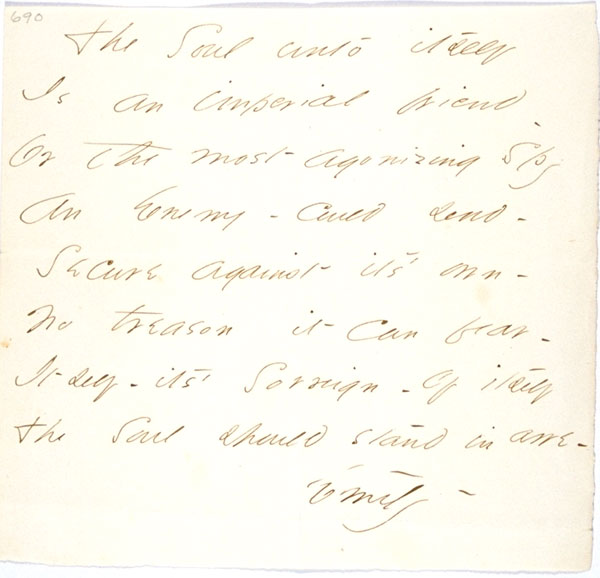 690
The Soul unto itself
Is an imperial friend
Or the most agonizing Spy
An Enemy - could send -
Secure against it's own -
No treason it can fear -
Itself - it's Sovreign - Of itself
The Soul should stand in awe -
Emily -